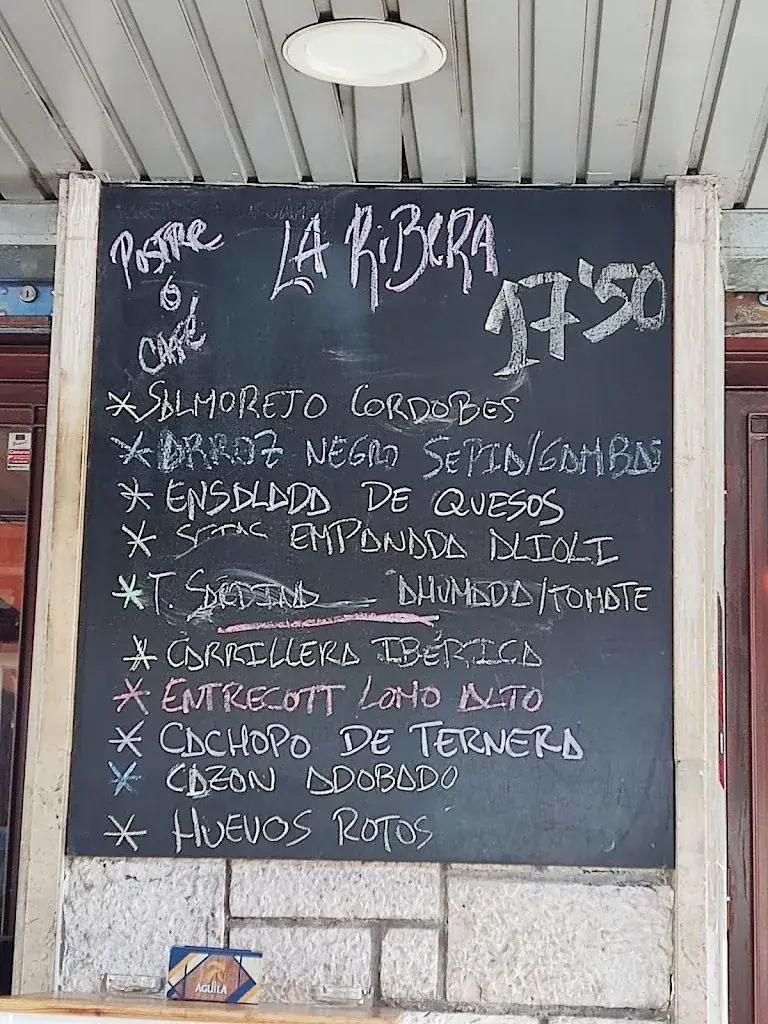 LA RiBERA
POSTRE
ó
CAFÉ
17'50
*SALMOREJO CORDOBES
*ARROZ NEGRO SEPIA/GAMBAS
*ENSALADA DE QUESOS
*SETAS EMPANADA ALIOLI
*T. SARDINA AHUMADA/TOMATE
*CARRILLERA IBÉRICA
*ENTRECOTT LOMO ALTO
*CACHOPO DE TERNERA
*CAZON ADOBADO
*HUEVOS ROTOS
AGUILA